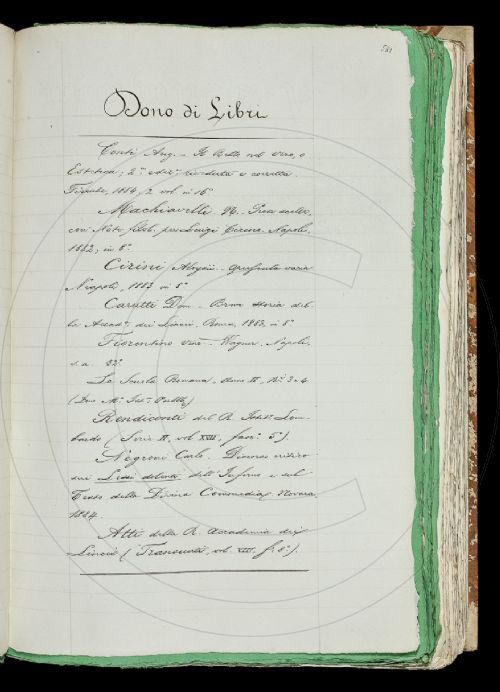 581
Dono di Libri
Conti Aug. - Il Bello nel Vero, o
Estetica; 2ª ediz. riveduta e corretta.
Firenze, 1884, 2 vol. in 16°
Machiavelli N. Prose scelte,
con Note filol. per Luigi Napoli,
1882, in 8°.
Cirini Aloysii. varia
Neapoli, 1883 in 8°
Carutti Dom. Breve storia del-
la Accad.ª dei Lincei. Roma, 1883, in 8°
Fiorentino Wagner. Napoli,
s. a. 32°
La Scuola Romana, Anno II, N.i 3 e 4
Rendiconti del R. Istit.° Lom-
bardo (Serie II, vol XVII, fasc. 5°).
Negroni Carlo. Discorso critico
sui Lessi dell'Inferno e sul
Testo della Divina Commedia. Novara
1884.
Atti della R. Accademia dei
Lincei (Transunti, vol. VIII, f. 8°).